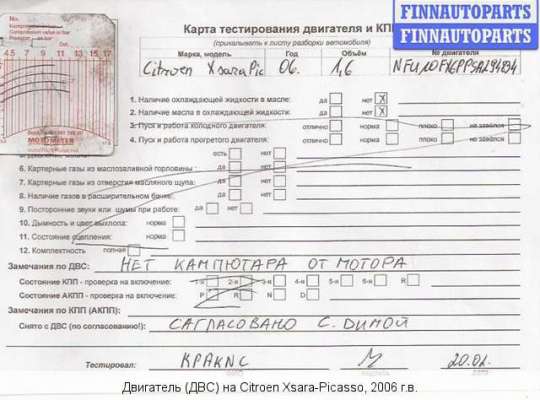 FINNAUTOPARTS
FINNAUTOPARTS
Карта тестирования двигателя и КП
(прикалывать к листу разборки автомобиля)
Марка, модель Год Объём № двигателя
Citroen Xsara Pic 06. 1,6
4.5 7 9 11 13 15 17
MOTOMETER
1. Наличие охлаждающей жидкости в масле: да нет X
2. Наличие масла в охлаждающей жидкости: да нет X
3. Пуск и работа холодного двигателя: отлично норма плохо не завёлся
4. Пуск и работа прогретого двигателя: отлично норма плохо не завёлся
есть нет
6. Картерные газы из маслозаливной горловины: да нет
7. Картерные газы из отверстия масляного щупа: да нет
8. Наличие газов в расширительном бачке: да нет
9. Посторонние звуки или шумы при работе: да нет
10. Дымность и цвет выхлопа: норма
11. Состояние сцепления: норма
12. Комплектность полная
Замечания по ДВС: НЕТ КАМПЮТАРА ОТ МОТОРА
Состояние КПП - проверка на включение: 1-я 2-я 3-я 4-я 5-я R 6-я
Состояние АКПП - проверка на включение: P R N D
Замечания по КПП (АКПП):
Снято с ДВС (по согласованию!): САГЛАСОВАНО С. ДИМОЙ
Тестировал: 20.02.
Двигатель (ДВС) на Citroen Xsara-Picasso, 2006 г.в.